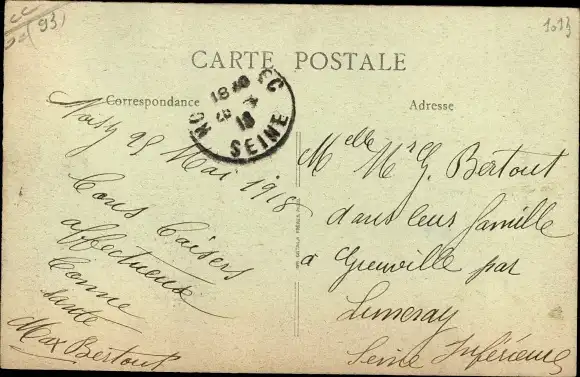 (93)
1013
CARTE POSTALE
Correspondance
Adresse
NO EC
18 40
SEINE
Noisy 28 Mai 1918
Bons Baisers
affectueux
Bonne
santé
Max Bertout
Melle Mr G. Bertout
dans leur famille
à Greuville par
Luneray
Seine Inférieure